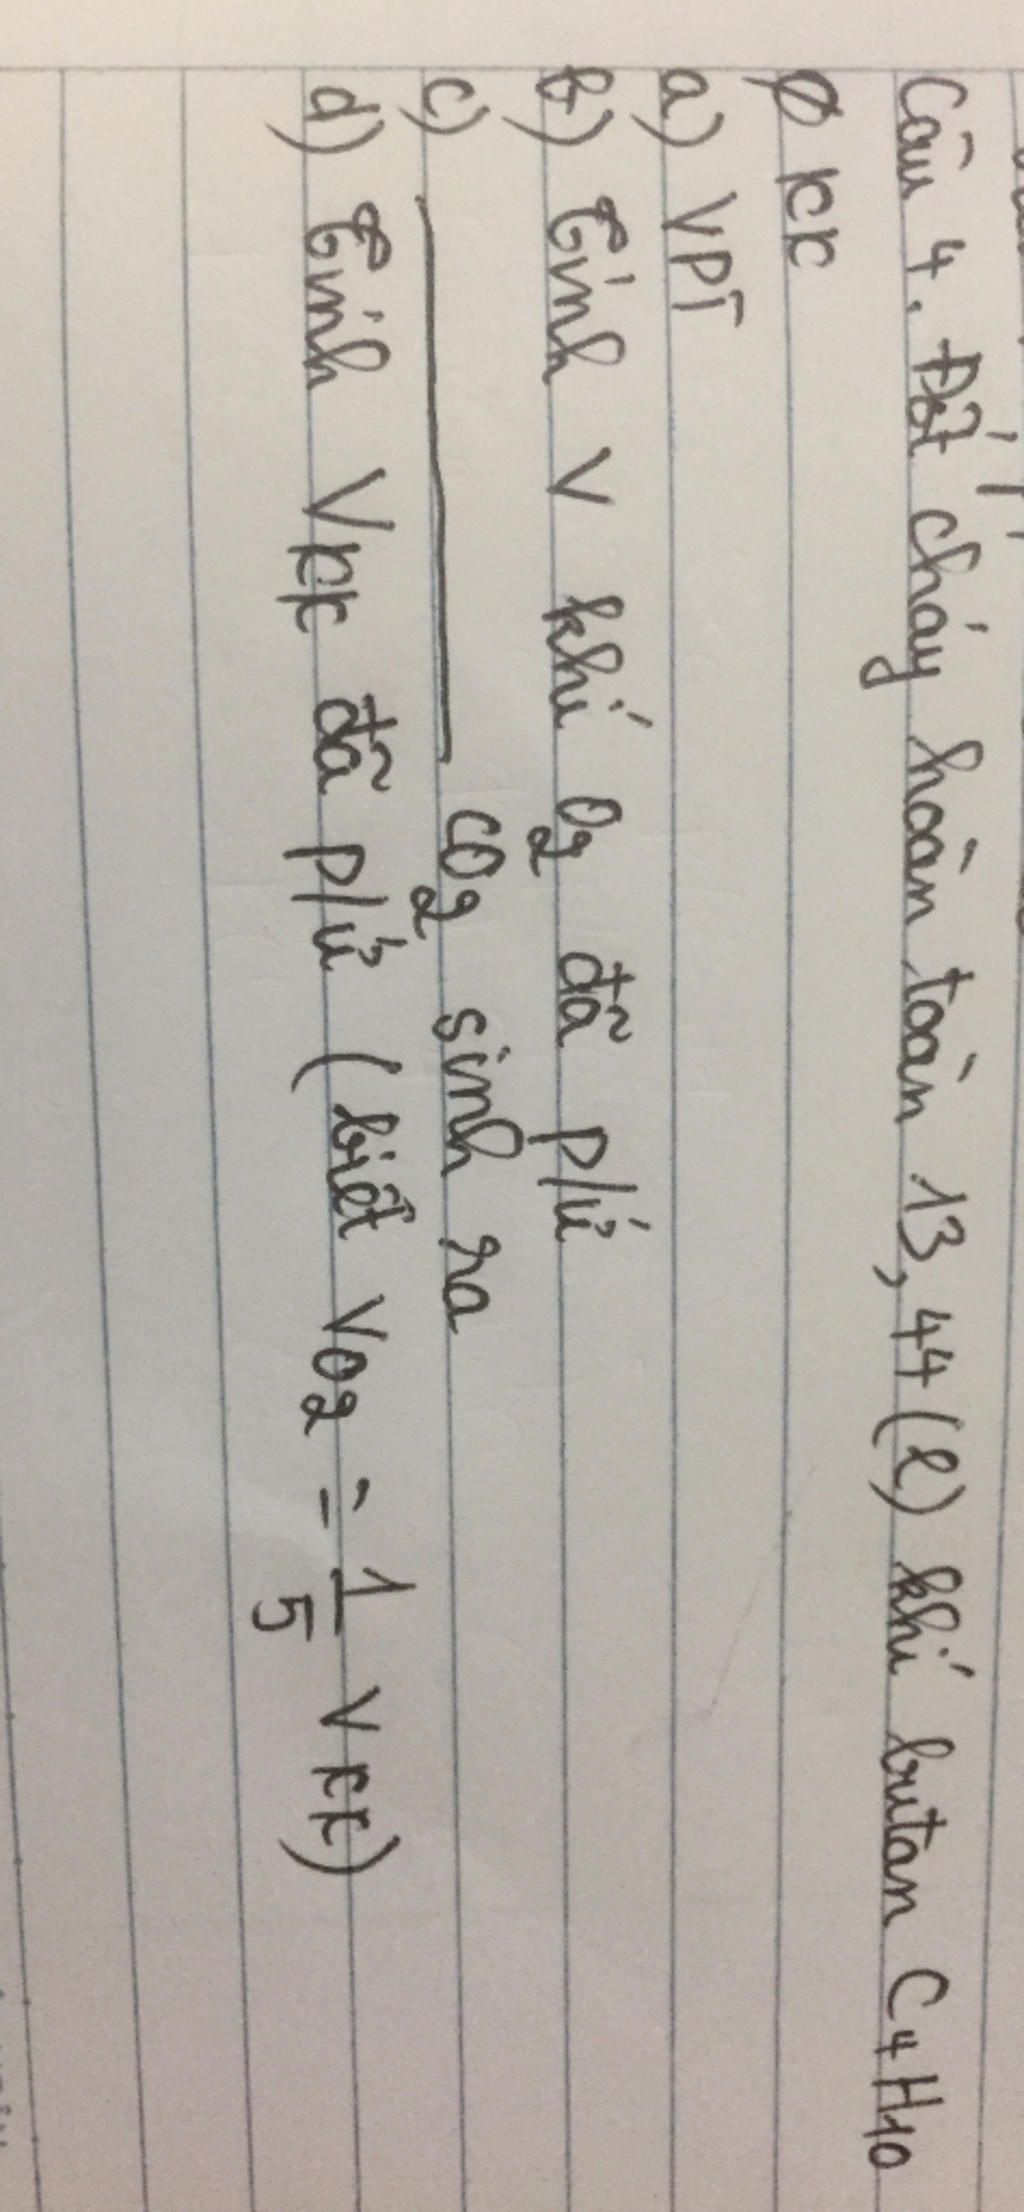 Câu 4. Đốt cháy hoàn toàn 13,44 (l) khí butan C4H10
Ø KK
a) VPT
b) Tính V khí O2 đã p/ứ
c) ——— CO2 sinh ra
d) Tính VKK đã p/ứ (biết VO2 = 1/5 VKK)